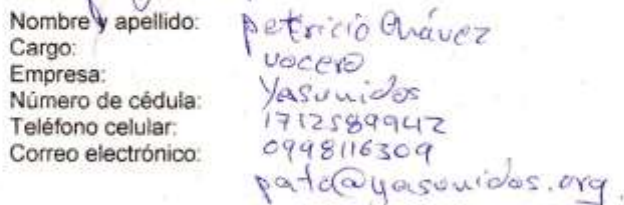 Nombre y apellido: patricio Chávez
Cargo: vocero
Empresa: Yasunidos
Número de cédula: 1712589942
Teléfono celular: 0998116309
Correo electrónico: pato@yasunidos.org.